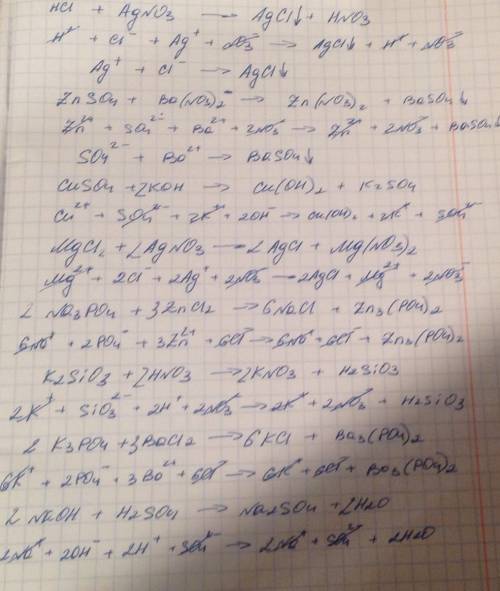 HCl + AgNO₃ → AgCl↓ + HNO₃
H⁺ + Cl⁻ + Ag⁺ + NO₃⁻ → AgCl↓ + H⁺ + NO₃⁻
Ag⁺ + Cl⁻ → AgCl↓
ZnSO₄ + Ba(NO₃)₂ → Zn(NO₃)₂ + BaSO₄↓
Zn²⁺ + SO₄²⁻ + Ba²⁺ + 2NO₃⁻ → Zn²⁺ + 2NO₃⁻ + BaSO₄↓
SO₄²⁻ + Ba²⁺ → BaSO₄↓
CuSO₄ + 2KOH → Cu(OH)₂ + K₂SO₄
Cu²⁺ + SO₄²⁻ + 2K⁺ + 2OH⁻ → Cu(OH)₂ + 2K⁺ + SO₄²⁻
MgCl₂ + 2AgNO₃ → 2AgCl + Mg(NO₃)₂
Mg²⁺ + 2Cl⁻ + 2Ag⁺ + 2NO₃⁻ → 2AgCl + Mg²⁺ + 2NO₃⁻
2 Na₃PO₄ + 3ZnCl₂ → 6NaCl + Zn₃(PO₄)₂
6Na⁺ + 2PO₄⁻ + 3Zn²⁺ + 6Cl⁻ → 6Na⁺ + 6Cl⁻ + Zn₃(PO₄)₂
K₂SiO₃ + 2HNO₃ → 2KNO₃ + H₂SiO₃
2K⁺ + SiO₃²⁻ + 2H⁺ + 2NO₃⁻ → 2K⁺ + 2NO₃⁻ + H₂SiO₃
2 K₃PO₄ + 3BaCl₂ → 6KCl + Ba₃(PO₄)₂
6K⁺ + 2PO₄⁻ + 3Ba²⁺ + 6Cl⁻ → 6K⁺ + 6Cl⁻ + Ba₃(PO₄)₂
2 NaOH + H₂SO₄ → Na₂SO₄ + 2H₂O
2Na⁺ + 2OH⁻ + 2H⁺ + SO₄²⁻ → 2Na⁺ + SO₄²⁻ + 2H₂O